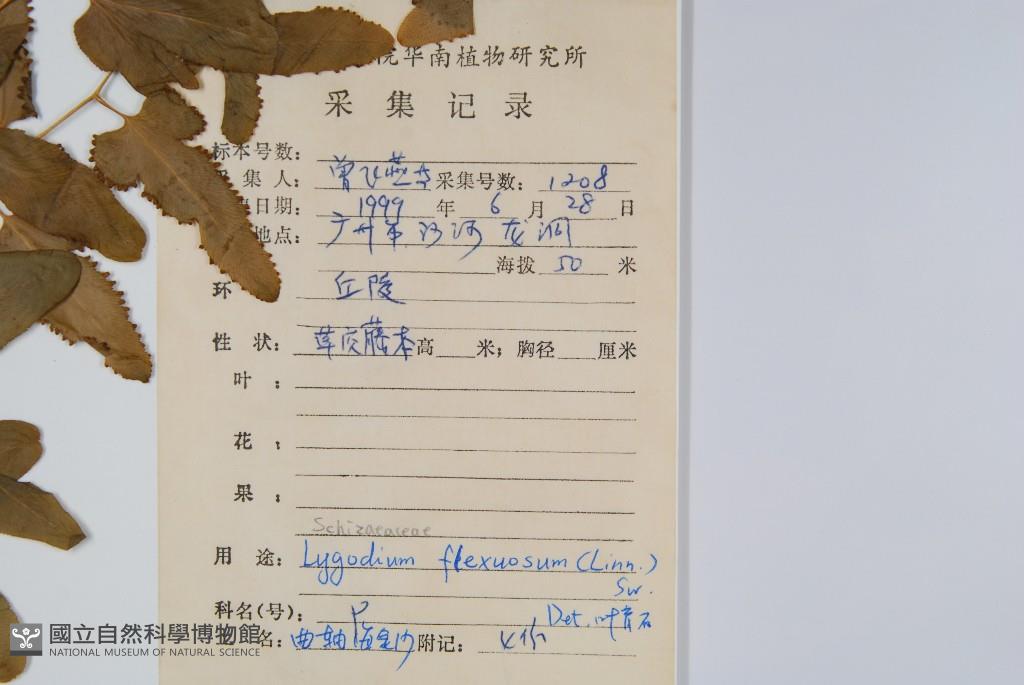 院华南植物研究所
采集记录
标本号数:
采集人: 曾飞燕等 采集号数: 1208
日期: 1999 年 6 月 28 日
地点: 广州市沙河龙洞
海拨 50 米
环 丘陵
性状: 草质藤本 高 米; 胸径 厘米
叶:
花:
果:
Schizaeaceae
用途: Lygodium flexuosum (Linn.)
Sw.
科名(号): P Det. 叶育石
名: 曲轴海金沙 附记: 4份
國立自然科學博物館
NATIONAL MUSEUM OF NATURAL SCIENCE